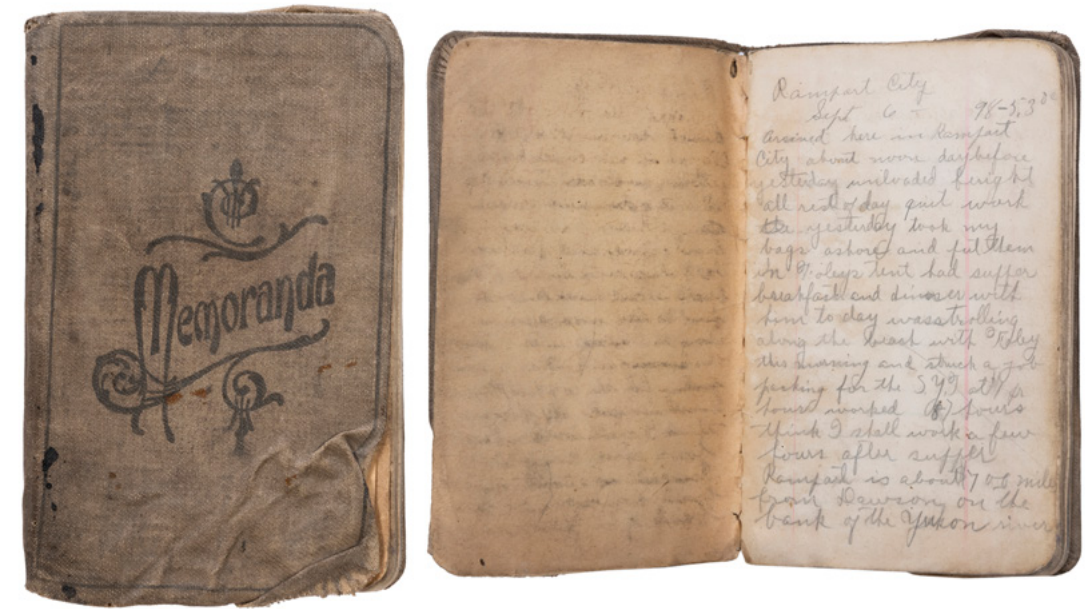 Memoranda
Rampart City
Sept 6 - 98-53°
Arrived here in Rampart
City about noon day before
yesterday unloaded freight
all rest of day quit work
yesterday took my
bags ashore and put them
in Foleys tent had supper
breakfast and dinner with
him to day was strolling
along the beach with Foley
this morning and struck a job
packing for the S Y T at
hours worked hours
think I shall work a few
hours after supper
Rampart is about 700 miles
from Dawson on the
bank of the Yukon river